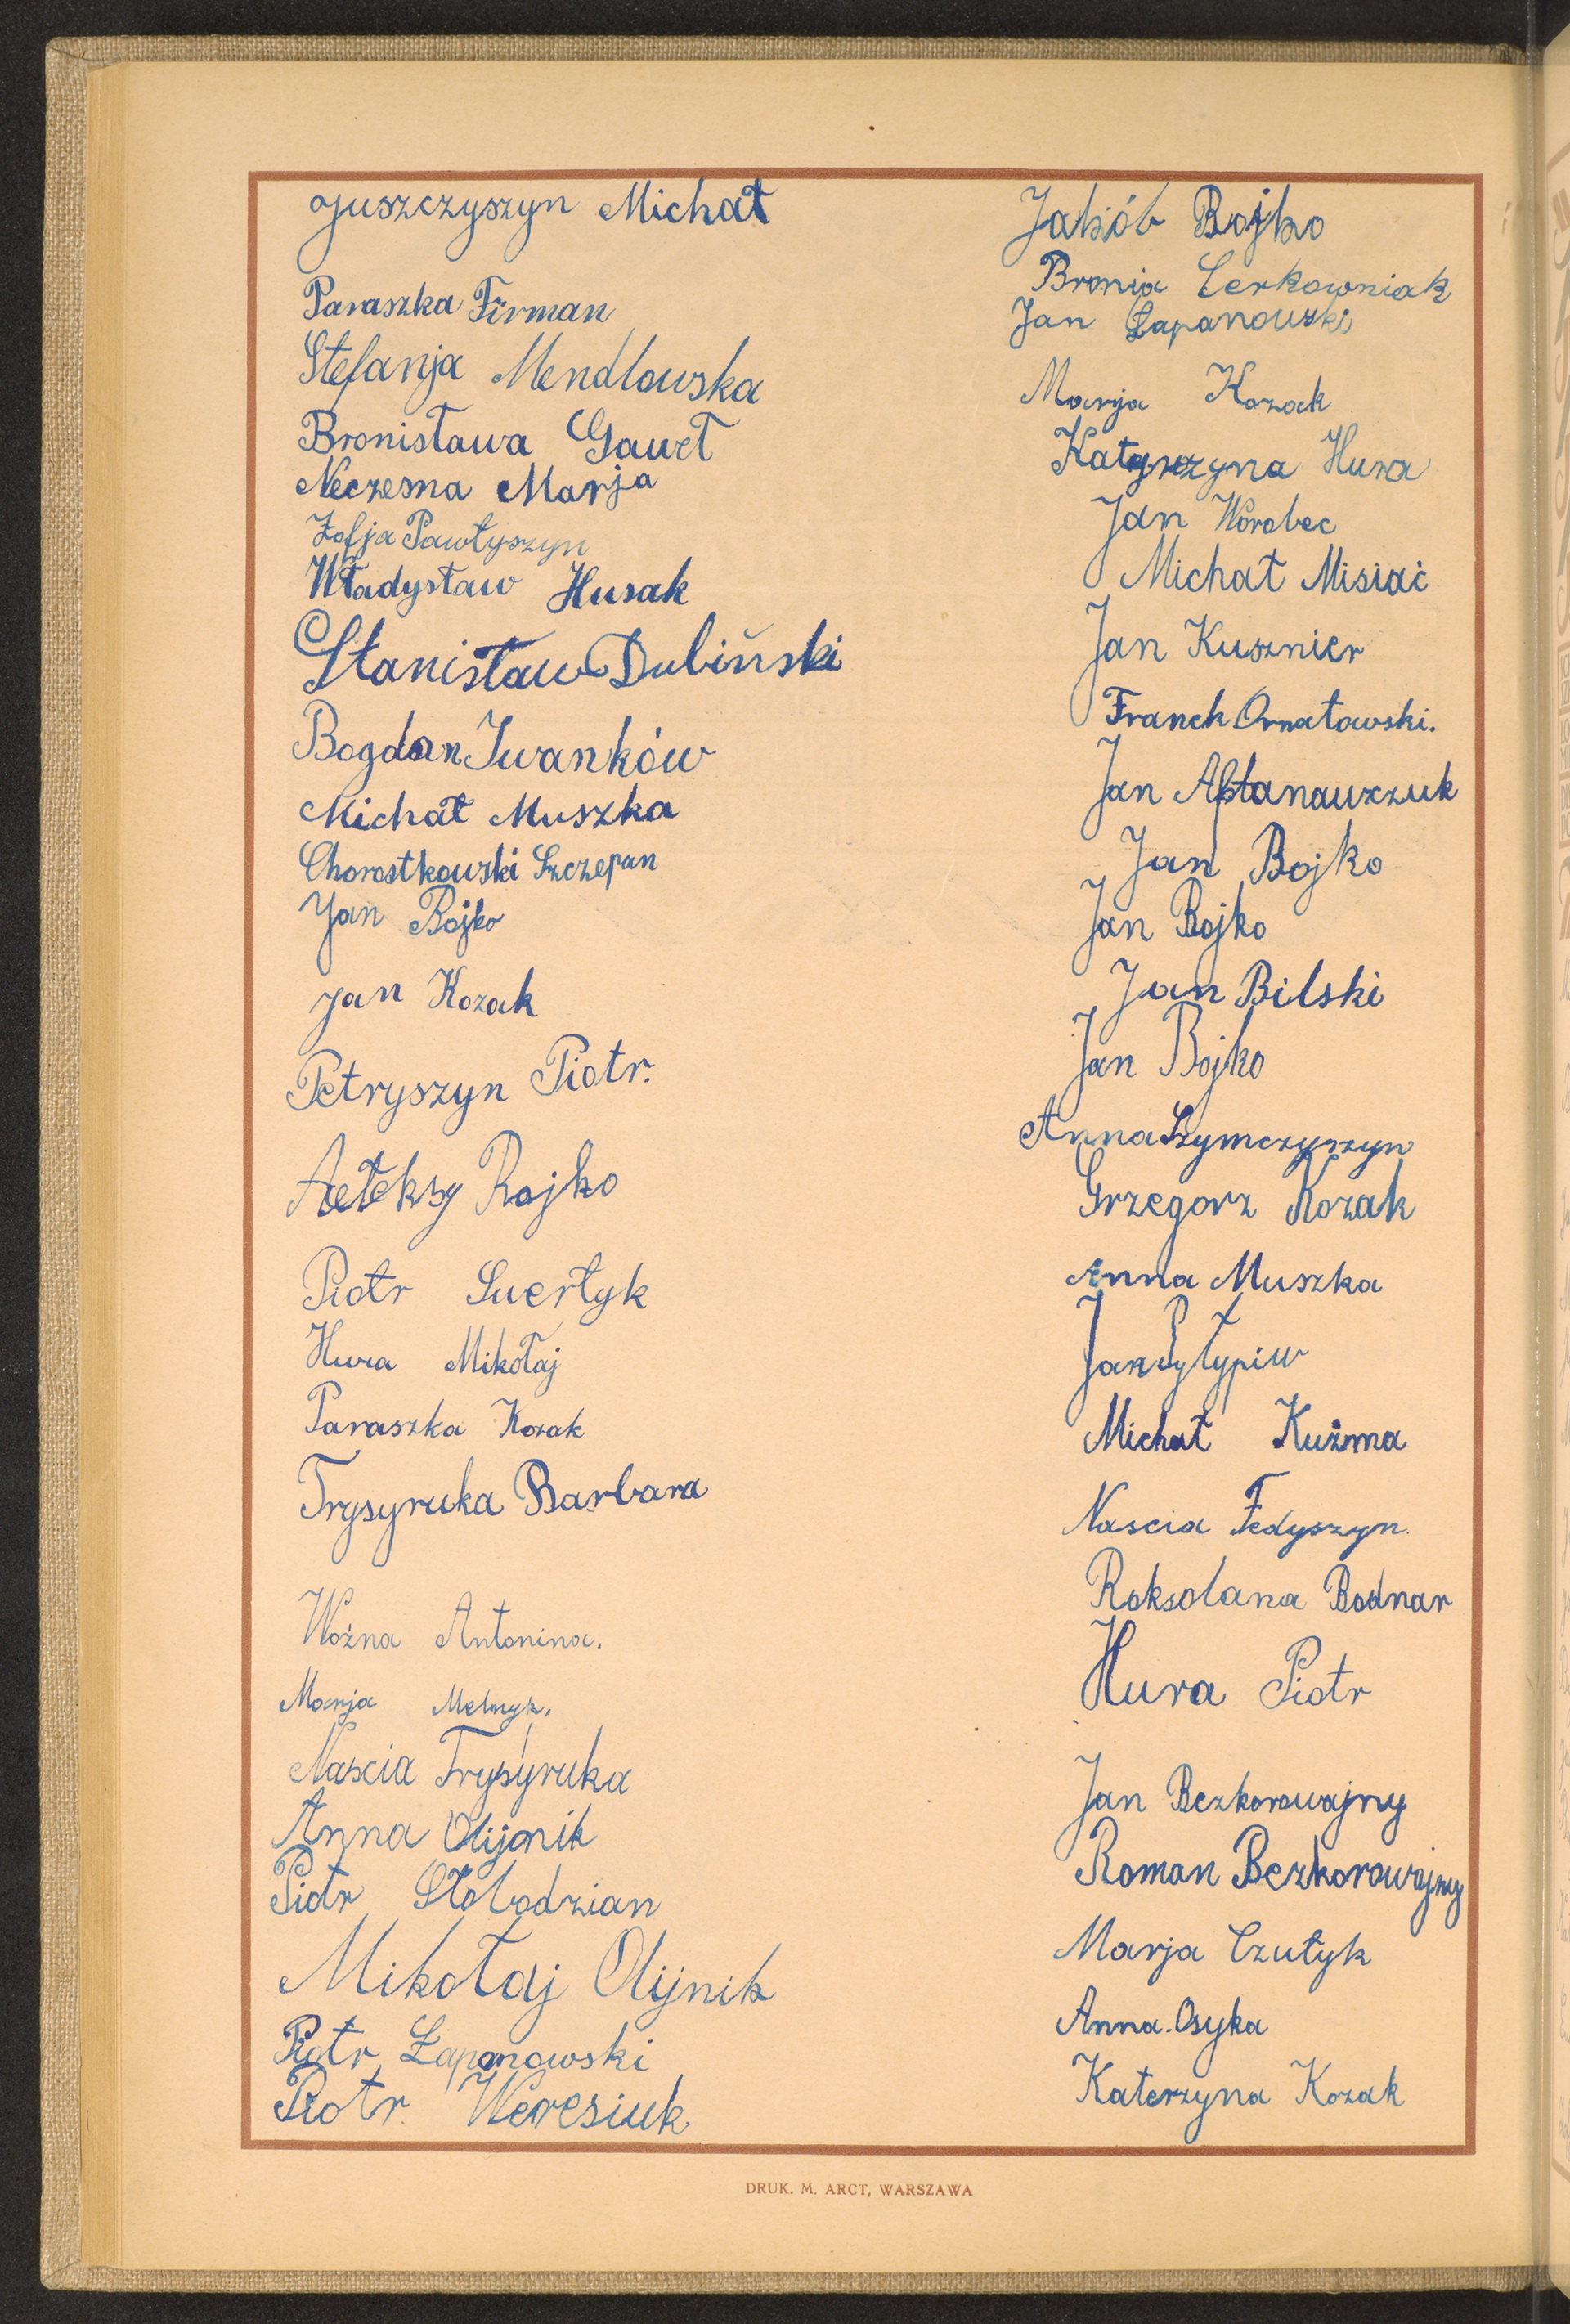 Juszczyszyn Michał
Paraszka Firman
Stefanja Mendlowska
Bronisława Gaweł
Neczesna Marja
Zofja Pawłyszyn
Władysław Husak
Stanisław Dubiński
Bogdan Iwanków
Michał Muszka
Chorostkowski Szczepan
Jan Bojko
Jan Kozak
Petryszyn Piotr.
Bojko
Piotr Swertyk
Hura Mikołaj
Paraszka Kozak
Trysyruka Barbara
Woźna Antonina.
Marja Melnyk.
Naścia Trysyruka
Anna Olijnik
Piotr Słobodzian
Mikołaj Olijnik
Piotr Łapanowski
Piotr Weresiuk
Jakób Bojko
Bronia Cerkowniak
Jan Łapanowski
Marja Kozak
Katarzyna Hura
Jan Worobec
Michał Misiać
Jan Kusznier
Franek Ornatowski.
Jan Aftanauczuk
Jan Bojko
Jan Bojko
Jan Bilski
Jan Bojko
Anna Szymczyszyn
Grzegorz Kozak
Anna Muszka
Jan Pyłypiw
Michał Kuźma
Nascia Fedyszyn.
Roksolana Bodnar
Hura Piotr
Jan Bezkorowajny
Roman Bezkorowajny
Marja Czutyk
Anna Osyka
Katerzyna Kozak
DRUK. M. ARCT, WARSZAWA